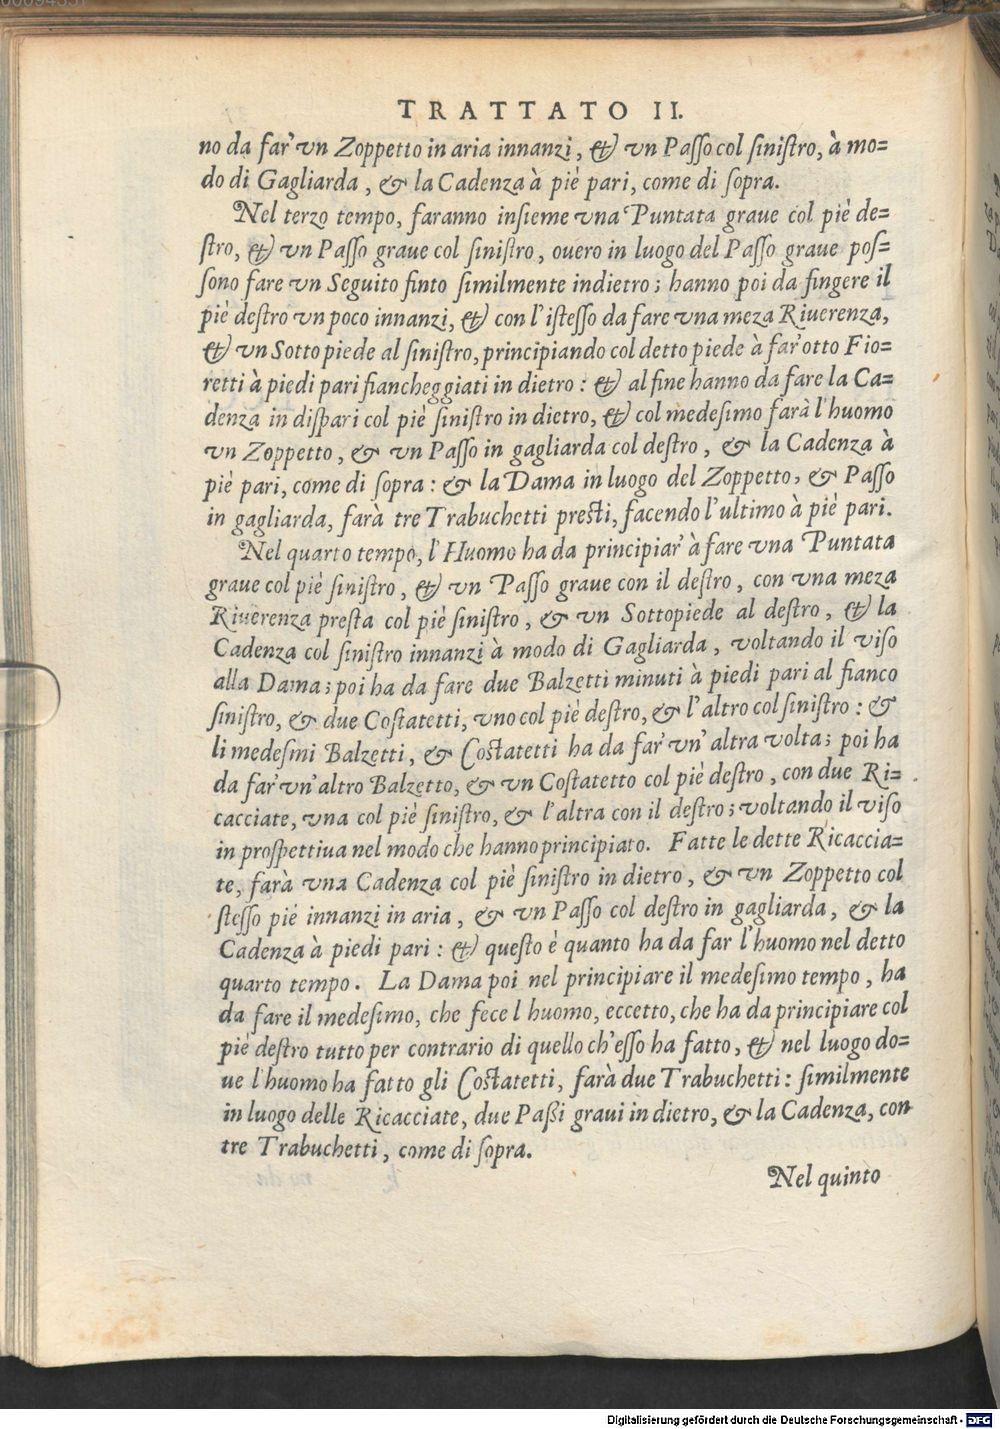 TRATTATO II.
no da far' vn Zoppetto in aria innanzi, & vn Paſſo col ſiniſtro, à mo=
do di Gagliarda, & la Cadenza à piè pari, come di ſopra.
Nel terzo tempo, faranno inſieme vna Puntata graue col piè de=
ſtro, & vn Paſſo graue col ſiniſtro, ouero in luogo del Paſſo graue poſ=
ſono fare vn Seguito finto ſimilmente indietro; hanno poi da fingere il
piè deſtro vn poco innanzi, & con l'iſteſſo da fare vna meza Riuerenza,
& vn Sottopiede al ſiniſtro, principiando col detto piede à far' otto Fio=
retti à piedi pari fiancheggiati in dietro: & al fine hanno da fare la Ca=
denza in diſpari col piè ſiniſtro in dietro, & col medeſimo farà l'huomo
vn Zoppetto, & vn Paſſo in gagliarda col deſtro, & la Cadenza à
piè pari, come di ſopra: & la Dama in luogo del Zoppetto, & Paſſo
in gagliarda, farà tre Trabuchetti preſti, facendo l'ultimo à piè pari.
Nel quarto tempo, l'Huomo ha da principiar' à fare vna Puntata
graue col piè ſiniſtro, & vn Paſſo graue con il deſtro, con vna meza
Riuerenza preſta col piè ſiniſtro, & vn Sottopiede al deſtro, & la
Cadenza col ſiniſtro innanzi à modo di Gagliarda, voltando il viſo
alla Dama; poi ha da fare due Balzetti minuti à piedi pari al fianco
ſiniſtro, & due Coſtatetti, vno col piè deſtro, & l'altro col ſiniſtro: &
li medeſmi Balzetti, & Coſtatetti ha da far' vn' altra volta; poi ha
da far' vn' altro Balzetto, & vn Coſtatetto col piè deſtro, con due Ri=
cacciate, vna col piè ſiniſtro, & l'altra con il deſtro; voltando il viſo
in proſpettiua nel modo che hanno principiato. Fatte le dette Ricaccia=
te, farà vna Cadenza col piè ſiniſtro in dietro, & vn Zoppetto col
ſteſſo piè innanzi in aria, & vn Paſſo col deſtro in gagliarda, & la
Cadenza à piedi pari: & queſto è quanto ha da far l'huomo nel detto
quarto tempo. La Dama poi nel principiare il medeſimo tempo, ha
da fare il medeſimo, che fece l huomo, eccetto, che ha da principiare col
piè deſtro tutto per contrario di quello ch'eſſo ha fatto, & nel luogo do=
ue l'huomo ha fatto gli Coſtatetti, farà due Trabuchetti: ſimilmente
in luogo delle Ricacciate, due Paßi graui in dietro, & la Cadenza, con
tre Trabuchetti, come di ſopra.
Nel quinto
Digitalisierung gefördert durch die Deutsche Forschungsgemeinschaft - DFG